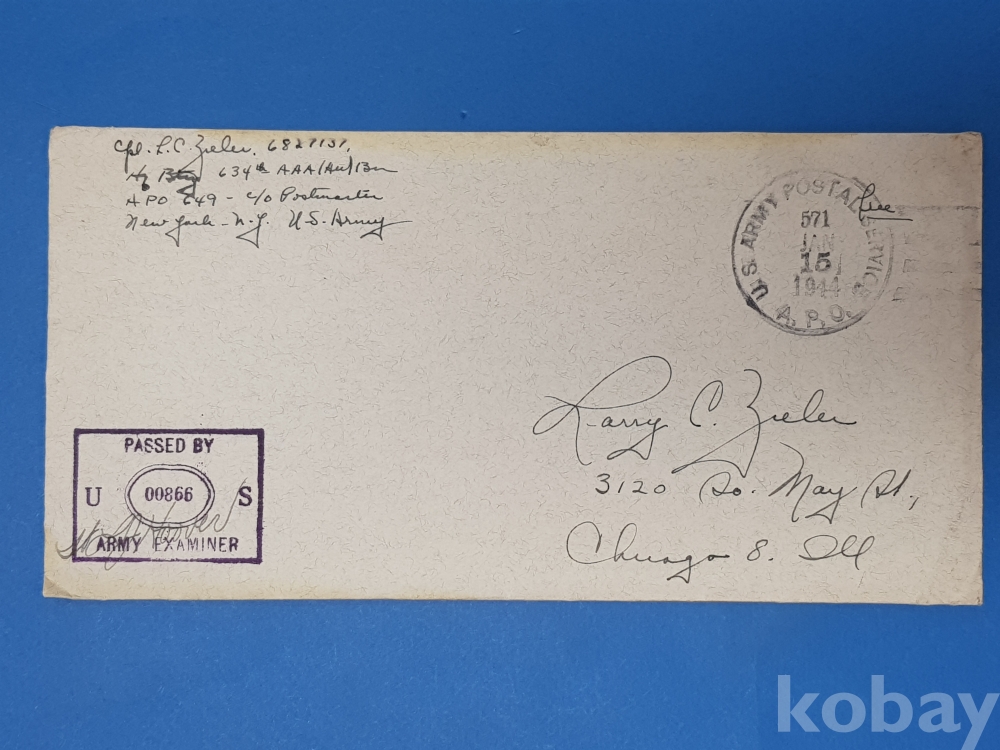 Cpl. L. C. Zieler. 6827137,
Hq Btry 634th AAA (AW) Bn
APO 649 - c/o Postmaster
New York - N.Y. U.S. Army
U.S. ARMY POSTAL SERVICE
A.P.O.
571
JAN
15
1944
Free
Larry C. Zieler
3120 So. May St,
Chicago 8. Ill
PASSED BY
U 00866 S
ARMY EXAMINER
kobay